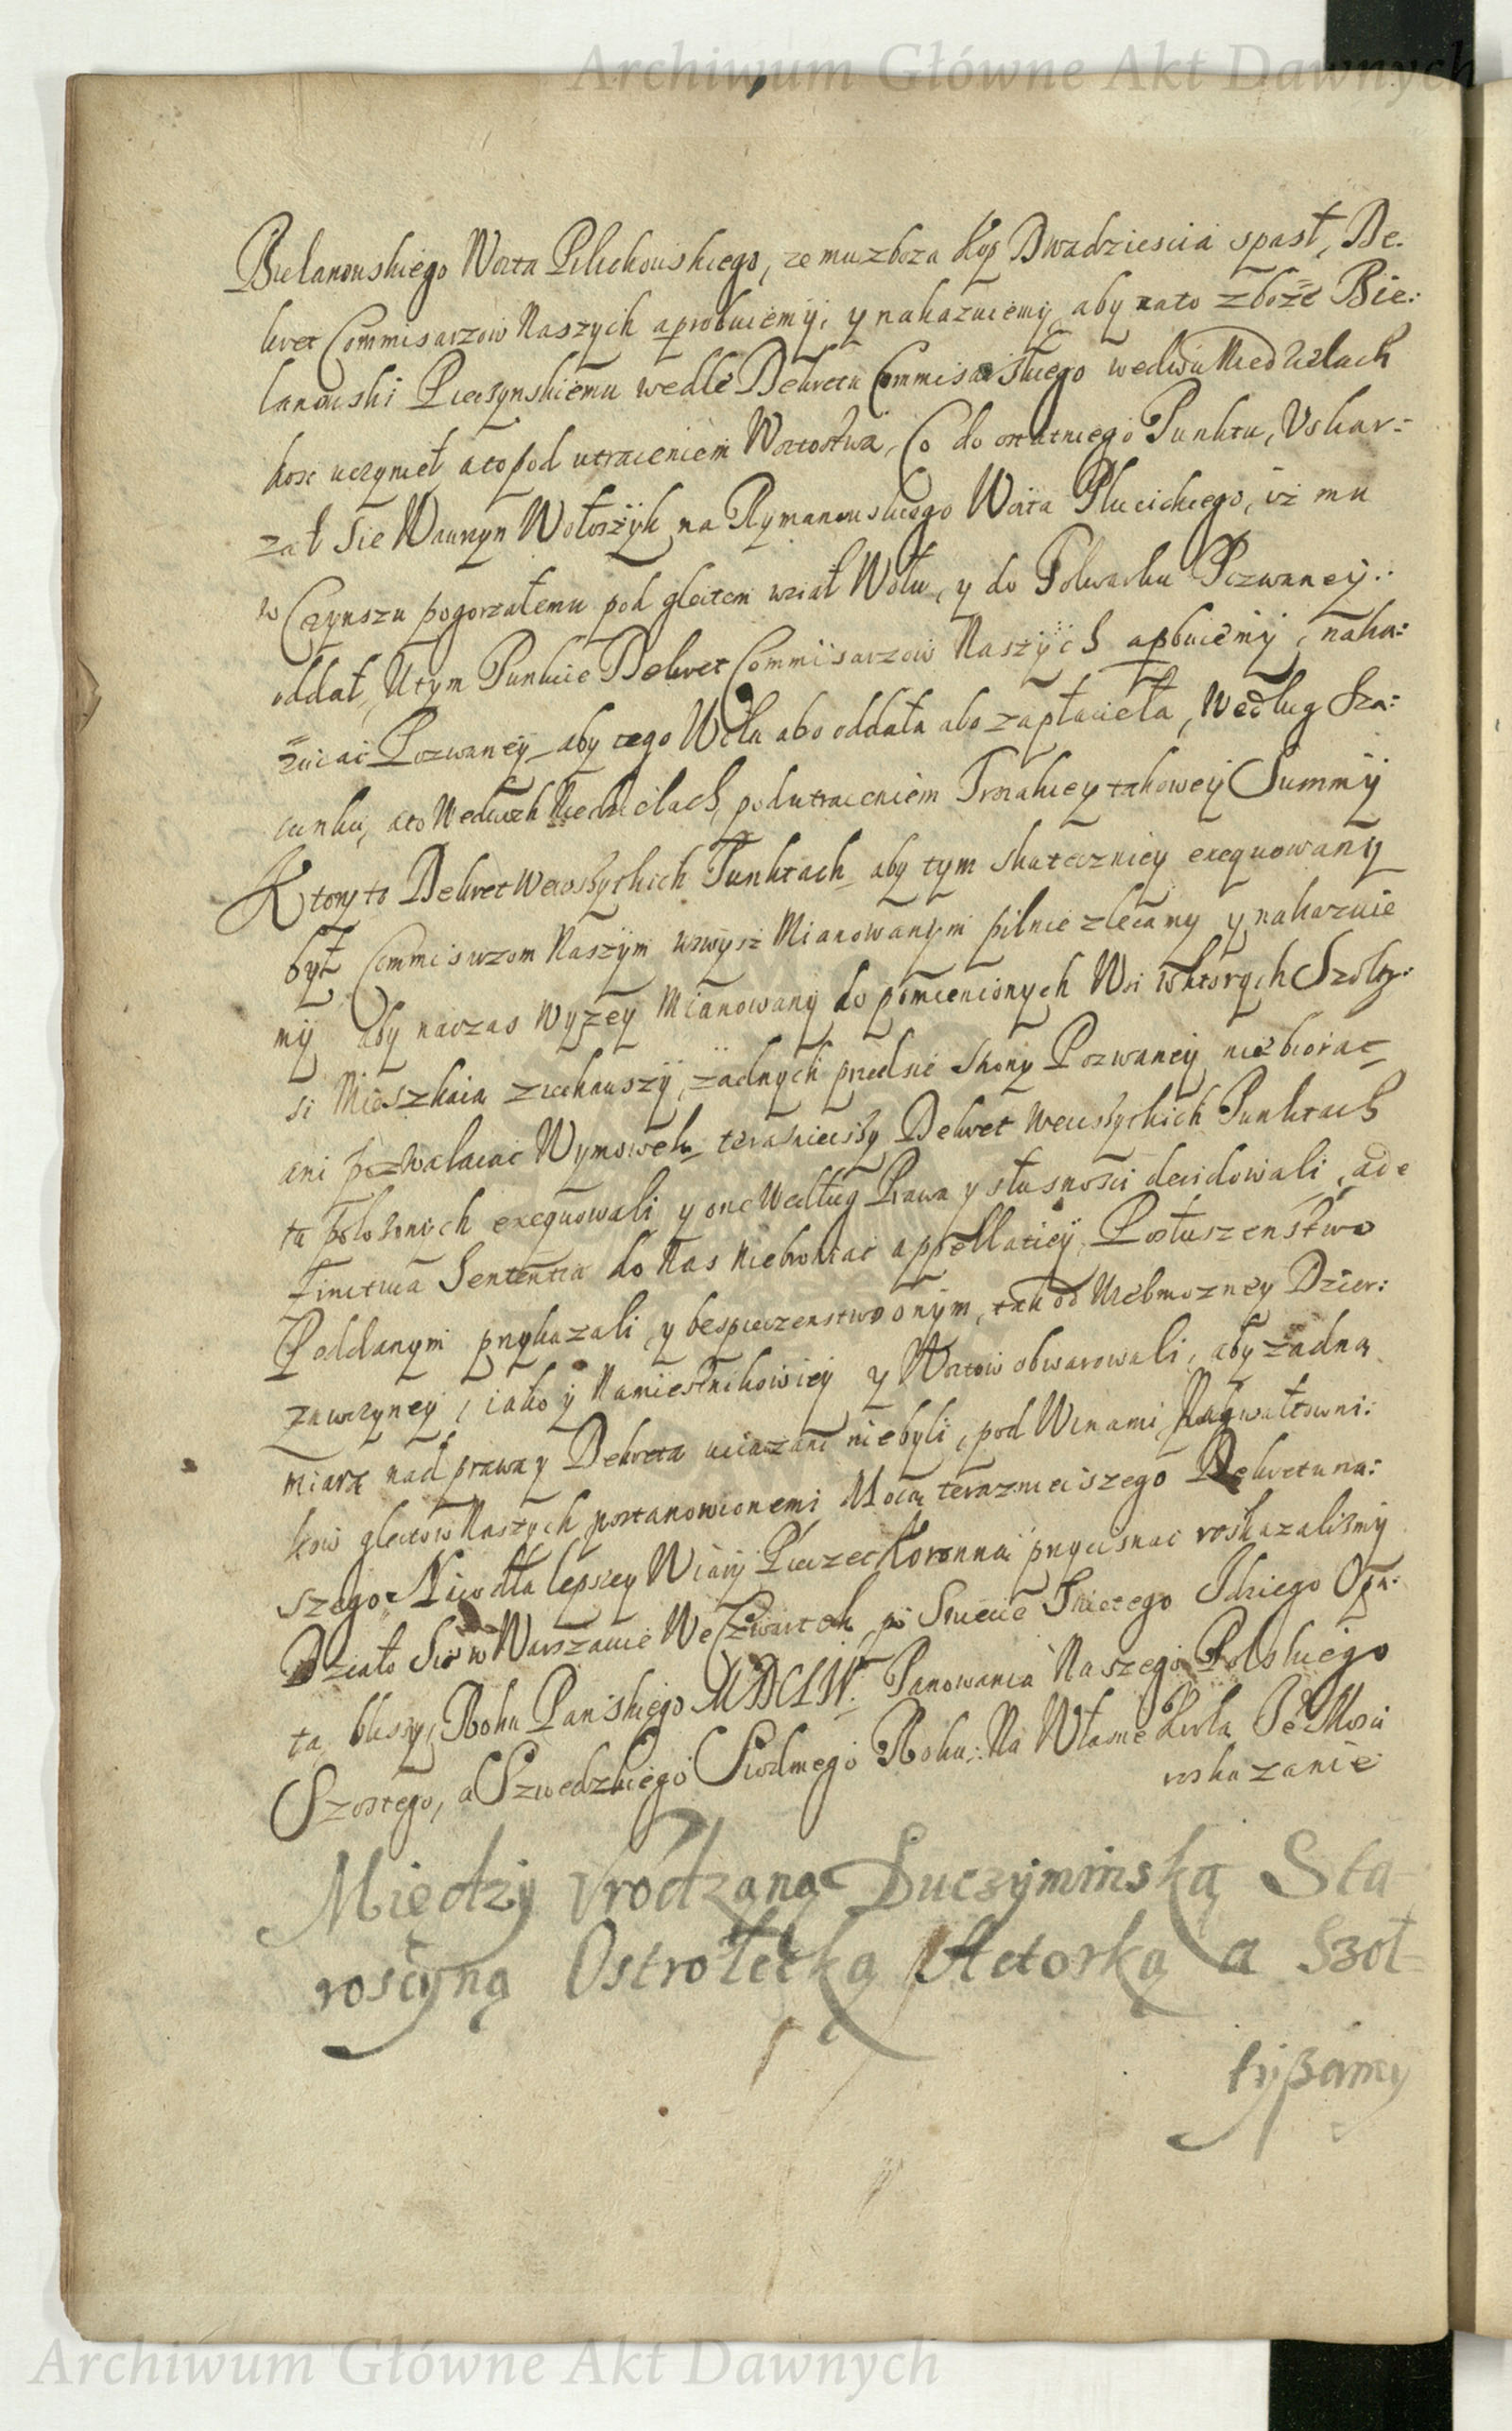 Archiwum Główne Akt Dawnych
Bielanowskiego Woita Pilichowskiego, ze mu zboza Kop Dwadziescia spasł, De-
kret Commisarzow Naszych aprobuiemy, y nakazuiemy aby za to zboże Bie:
lanowski Pieczynskiemu wedle Dekretu Commisarskiego we dwu Niedzielach
dosc uczynieł, a to pod utraceniem Woitostwa, Co do ostatniego Punktu, Uskar-
zał Sie Wawrzyn Wołoszyk na Rymanowskiego Woita Plucickiego, iż mu
w Czynszu pogorzałemu pod gleitem wział Wołu, y do Folwarku Pozwaney
oddał, W tym Punkcie Dekret Commisarzow Naszych aprobuiemy, naka:
zuiąc Pozwaney aby tego Wołu abo oddała abo zapłacieła, Według Sza:
cunku, a to We dwuch Niedzielach, pod utraceniem Troiakiey takowey Summy
Ktory to Dekret we wszystkich Punktach aby tym skuteczniey exequowany
był Commisarzom Naszym wzwysz Mianowanym pilnie zlecamy y nakazuie
my aby na czas Wyzey Mianowany do pomienionych Wsi w ktorych Szolty:
si Mieszkaia ziechawszy, żadnych przedsie strony Pozwaney nie biorac
ani pozwalaiac Wymowek, teraznieiszy Dekret we wszystkich Punktach
tu położonych exequowali y one Według Prawa y słusnosci decidowali, a de
finitiua Sententia do Nas nie broniac appellatiey, Posłuszenstwo
Poddanym przykazali, y bespieczenstwo onym, tak od Wielmozney Dzier:
zawczyney, iako y Namiestnikowiey y Woitow obwarowali, aby żadną
miarą nad prawa y Dekreta uciązani nie byli, pod Winami Na gwałtowni:
kow gleitow Naszych postanowionemi Mocą teraznieiszego Dekretu na:
szego Na co dla lepszey Wiary Pieczęć Koronna przycisnac roskazalismy
Działo Sie w Warszawie We Czwartek po Swiecie Swietego Idziego Opa:
ta blissy, Roku Panskiego MDCLIV. Panowania Naszego Polskiego
Szostego, a Szwedzkiego Siodmego Roku: Na Własne Krola Je° Mosci
wskazanie
Między Vrodzaną Duczyminską Sta-
rosciną Ostrołęcką Actorką a Szoł-
tyßamy
Archiwum Główne Akt Dawnych